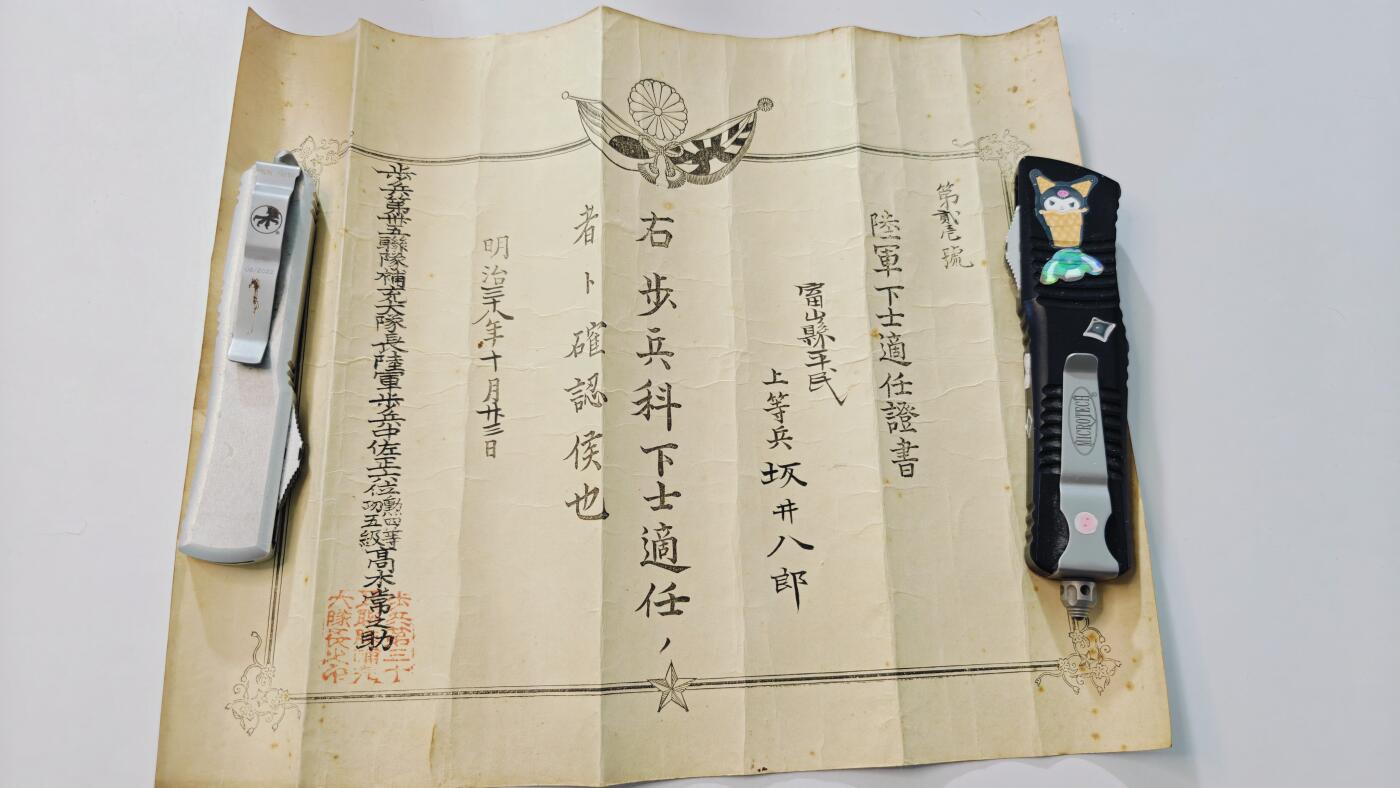 第貳壱號
陸軍下士適任證書
富山縣平民
上等兵 坂井八郎
右歩兵科下士適任ノ
者ト確認候也
明治三十八年十月廿三日
歩兵第卅五聯隊補充大隊長陸軍歩兵中佐正六位勲四等功五級高木常之助
歩兵第三十
大隊長之印
MICROTECH